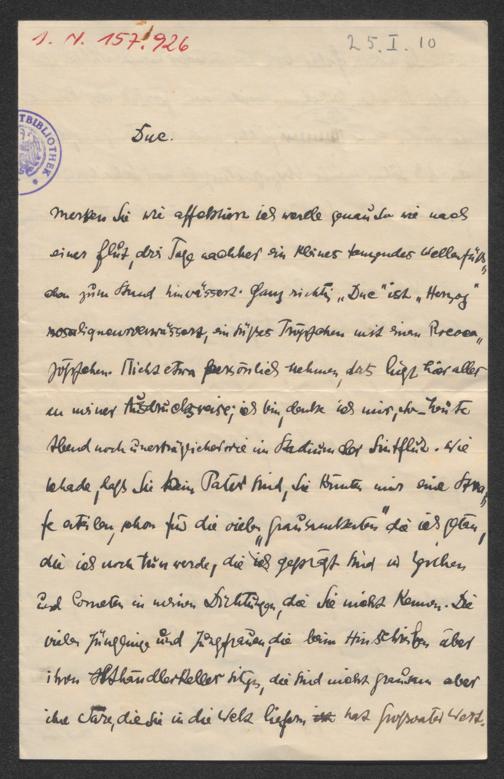 I. N. 157.926
25.I.10
TBIBLIOTHEK
Duc.
merken Sie wie affektiert ich werde genau so wie nach
einer Flut, drei Tage nachher ein kleines tanzendes Wellenfüß„
chen zum Strand hinwässert. Ganz richtig „Duc“ ist „Herzog“
verwässert, ein süßes Tröpfchen mit einem Rococo„
zöpfchen. Nicht etwa persönlich nehmen, das liegt hier alles
an meiner Ausdrucksweise; ich bin, denke ich mir, heute
Abend noch unerträglicher wie im Stadium der Sintflut. Wie
schade, daß Sie kein Pater sind, Sie könnten mir eine Stra„
fe erteilen, schon für die vielen „Grausamkeiten“ die ich getan,
die ich noch tun werde, die ich geprägt sind in
und Cometen in meinen Dichtungen, die Sie nicht kennen. Die
vielen Jünglinge und Jungfrauen, die beim Hinschreiben über
ihren Obsthändlerkeller sitzen, die sind nicht grausam aber
ihre Star, die sie in die Welt liefern hat Großvater Wert.